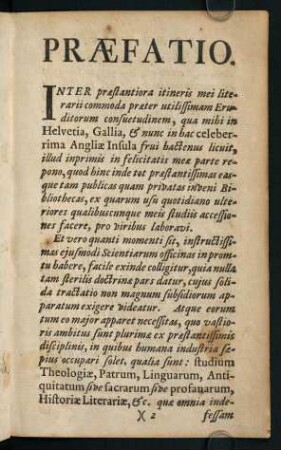 PRÆFATIO.
INTER præstantiora itineris mei lite-
rarii commoda præter utilissimam Eru-
ditorum consuetudinem, qua mihi in
Helvetia, Gallia, & nunc in hac celeber-
rima Angliæ Insula frui hactenus licuit,
illud inprimis in felicitatis meæ parte re-
pono, quod hinc inde tot præstantissimas eas-
que tam publicas quam privatas inveni Bi-
bliothecas, ex quarum usu quotidiano ulte-
riores qualibuscunque meis studiis accessio-
nes facere, pro viribus laboravi.
Et vero quanti momenti sit, instructissi-
mas ejusmodi Scientiarum officinas in prom-
tu habere, facile exinde colligitur, quia nulla
tam sterilis doctrinæ pars datur, cujus soli-
da tractatio non magnum subsidiorum ap-
paratum exigere videatur. Atque eorum
tum eo major apparet necessitas, quo vastio-
ris ambitus sunt plurimæ ex præstantissimis
disciplinis, in quibus humana industria sæ-
pius occupari solet. qualia sunt: studium
Theologiæ, Patrum, Linguarum, Anti-
quitatum sive sacrarum sive profanarum,
Historiæ Literariæ, &c. quæ omnia inde-
)( 2 fessam